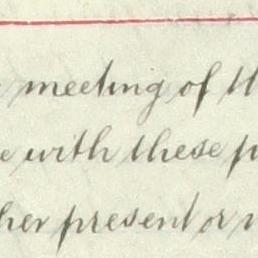 meeting of th
e with these p
her present or